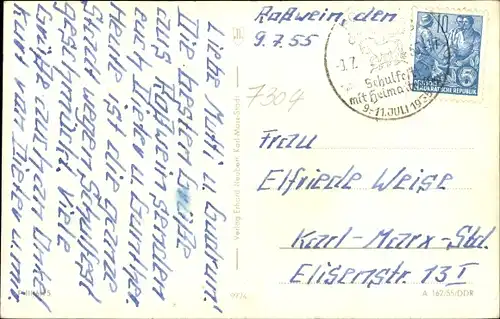 Roßwein, den
9.7.55
Liebe Mutti u. Gudrun!
Die besten Grüße
aus Roßwein senden
euch Dieter u. Gunther
Heute ist die ganze
Stadt wegen Schulfest
geschmückt. Viele
Grüße auch an Onkel
Kurt von Dieter u.
7304
Frau
Elfriede Weise
Karl-Marx-Std.
Elisenstr. 13 I
Schulfest
mit Heima
9-11. JULI 1955
10
DEMOKRATISCHE REPUBLIK
Verlag Erhard Neubert, Karl-Marx-Stadt
A 162/55/DDR